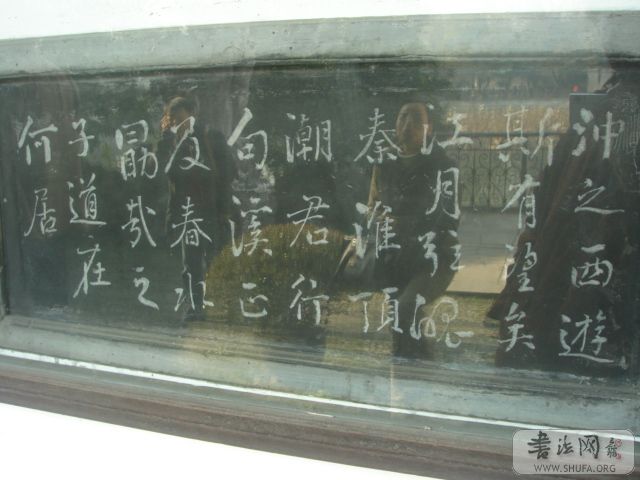 沖之西遊
斯有望矣
江月弦魄
秦淮頂
潮君行
句溪正
及春水
勗哉之
子道在
何居
書法网
WWW.SHUFA.ORG